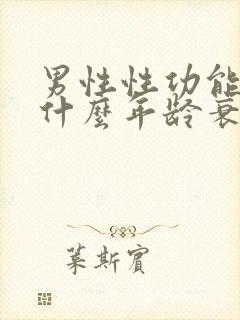 男性性功能
什麼年齡衰
葉斯賓